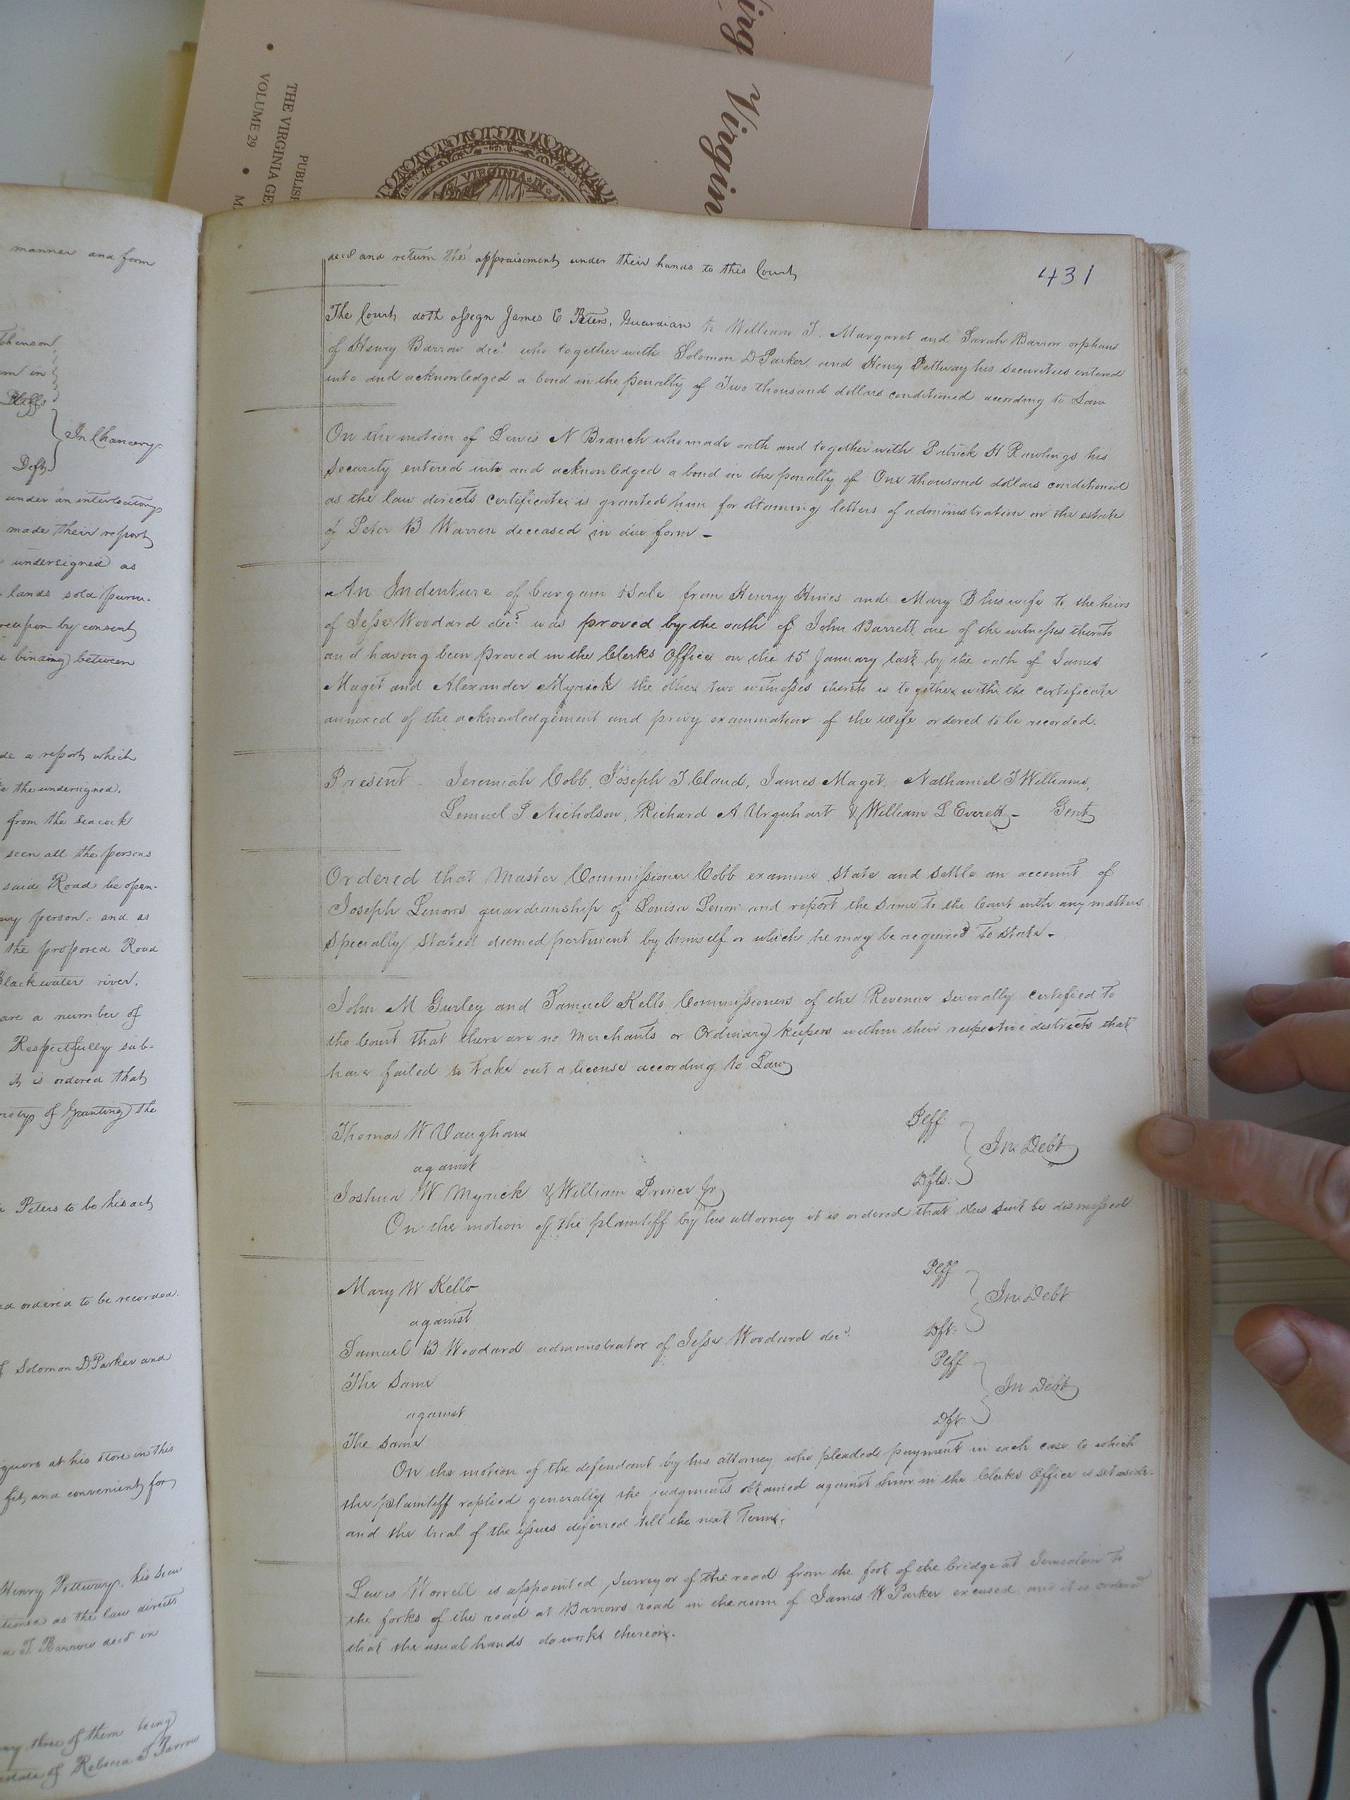 ing Virgin
Virgin
THE VIRGINIA GE
VOLUME 29
PUBLIS
VIRGINIA
manner and form
In Chancery
Defts
under an interlocutory
made their report
undersigned as
lands sold
by consent
binding) between
a report which
the undersigned.
from the
seen all the persons
said Road be open-
person. and as
the proposed Road
Blackwater river.
are a number of
Respectfully sub-
it is ordered that
of Granting) the
Peters to be his act
ordered to be recorded.
Solomon D Parker and
at his store in this
fit, and convenient for
Henry Pettway his secu
as the law directs
T. Barrow decd in
three of them being
estate of Rebecca T Barrow
431
decd and return the appraisement under their hands to this Court
The Court doth assign James C Peters, Guardian to William T. Margaret and Sarah Barrow orphans
of Henry Barrow decd who together with Solomon D Parker and Henry Pettway his securities entered
into and acknowledged a bond in the penalty of Two thousand dollars conditioned according to Law
On the motion of Lewis N Branch who made oath and together with Patrick H Rawlings his
security entered into and acknowledged a bond in the penalty of One thousand dollars conditioned
as the law directs certificate is granted him for obtaining letters of administration on the estate
of Peter B Warren deceased in due form -
An Indenture of bargain & Sale from Henry Hines and Mary B his wife to the heirs
of Jesse Woodard decd was proved by the oath of John Barrett one of the witnesses thereto
and having been proved in the Clerks Office on the 15 January last by the oath of James
Maget and Alexander Myrick the other two witnesses thereto is together with the certificate
annexed of the acknowledgement and privy examination of the wife ordered to be recorded.
Present - Jeremiah Cobb, Joseph T. Claud, James Maget, Nathaniel T Williams,
Lemuel P Nicholson, Richard A Urquhart & William L Everett - Gent
Ordered that Master Commissioner Cobb examine state and settle an account of
Joseph Lenows guardianship of Louisa Lenow and report the same to the Court with any matters
specially stated deemed pertinent by himself or which he may be required to state -
John M Gurley and Samuel Kello Commissioners of the Revenue severally certified to
the Court that there are no Merchants or Ordinary keepers within their respective districts that
have failed to take out a license according to Law
Thomas W Vaughan Plff
against In Debt
Joshua W Myrick & William Prince Jr Dfts.
On the motion of the plaintiff by his attorney it is ordered that this suit be dismissed
Mary W Kello Plff
against In Debt
Samuel B Woodard administrator of Jesse Woodard decd Dft.
The Same Plff
against In Debt
The Same Dft.
On the motion of the defendant by his attorney who pleaded payment in each case to which
the plaintiff replied generally the judgments obtained against him in the Clerks Office is set aside
and the trial of the issues deferred till the next Term.
Lewis Worrell is appointed surveyor of the road from the foot of the bridge at Jerusalem to
the forks of the road at Barrows road in the room of James W Parker excused and it is ordered
that the usual hands do works thereon.